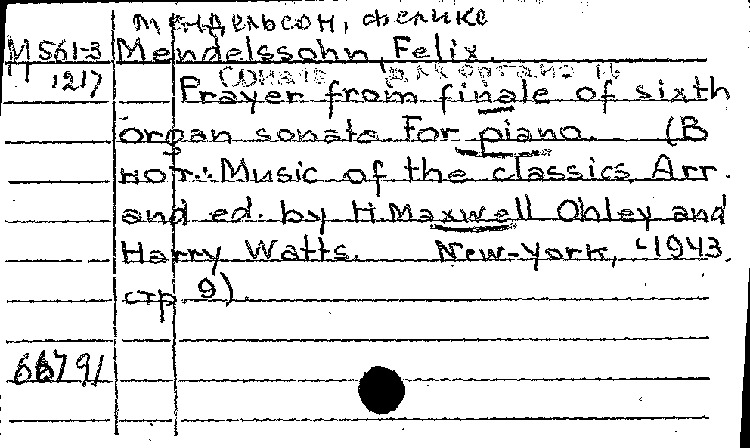 Мендельсон, Феликс
М 561-3 Mendelssohn, Felix.
1217
Соната для органа
Prayer from finale of sixth
organ sonata. For piano. (В
нот.: Music of the classics. Arr.
and ed. by H. Maxwell Ohley and
Harry Watts. New-York, 1943.
стр 9).
66791